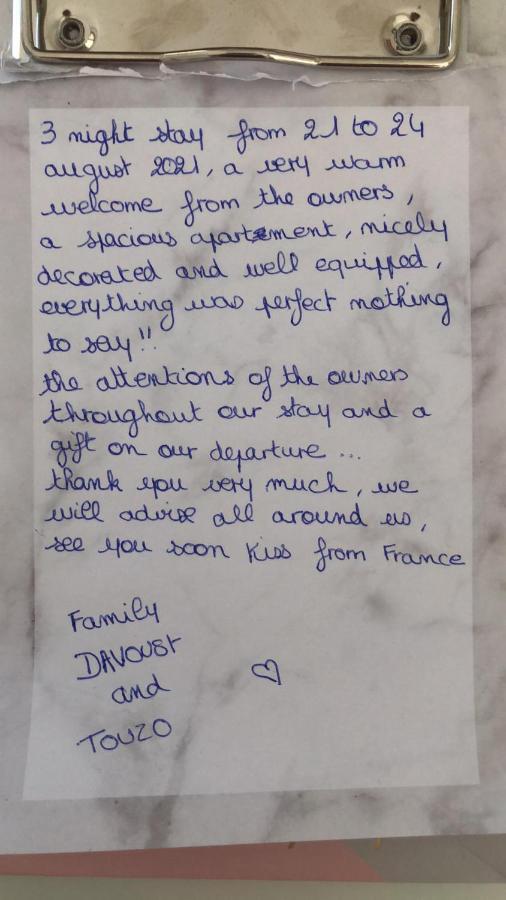 3 night stay from 21 to 24
august 2021, a very warm
welcome from the owners,
a spacious apartement, nicely
decorated and well equipped,
everything was perfect nothing
to say!!
the attentions of the owners
throughout our stay and a
gift on our departure ...
thank you very much, we
will advise all around us,
see you soon kiss from France
Family
DAVOUST
and
TOUZO